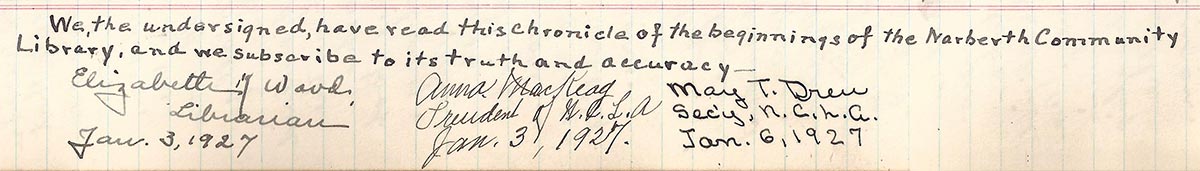 We, the undersigned, have read this chronicle of the beginnings of the Narberth Community
Library, and we subscribe to its truth and accuracy—
Elizabeth Wood, Anna MacKeag May T. Dreu
Librarian President of N.C.L.A Sec'y, N.C.L.A.
Jan. 3, 1927 Jan. 3, 1927. Jan. 6, 1927